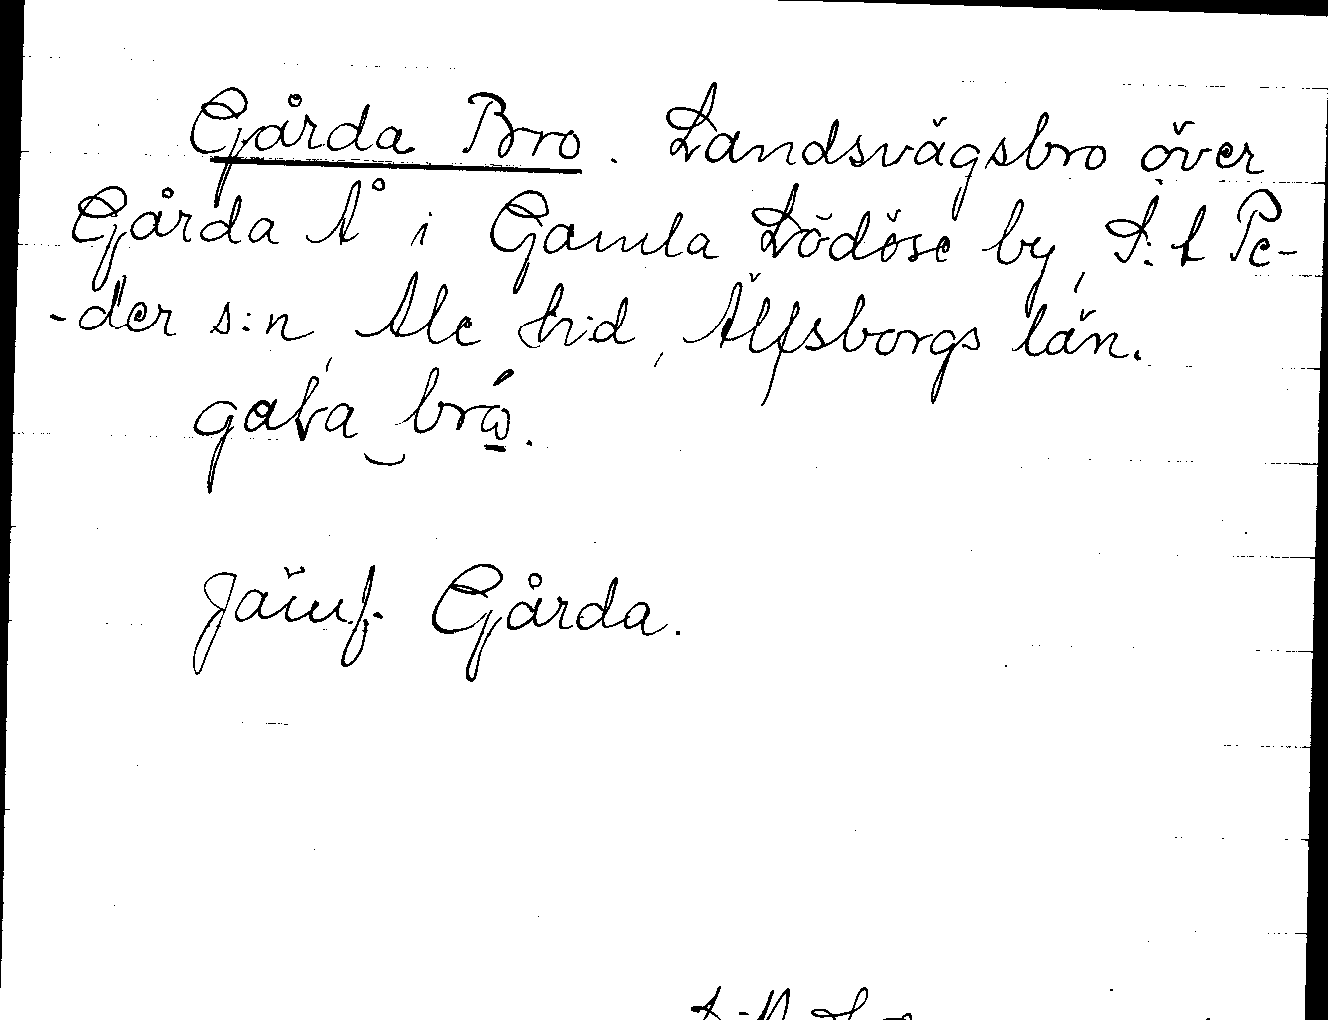 Gårda Bro. Landsvägsbro över
Gårda Å i Gamla Lödöse by, S:t Pe-
-der s:n, Ale h:d, Älfsborgs län.
Jämf. Gårda.